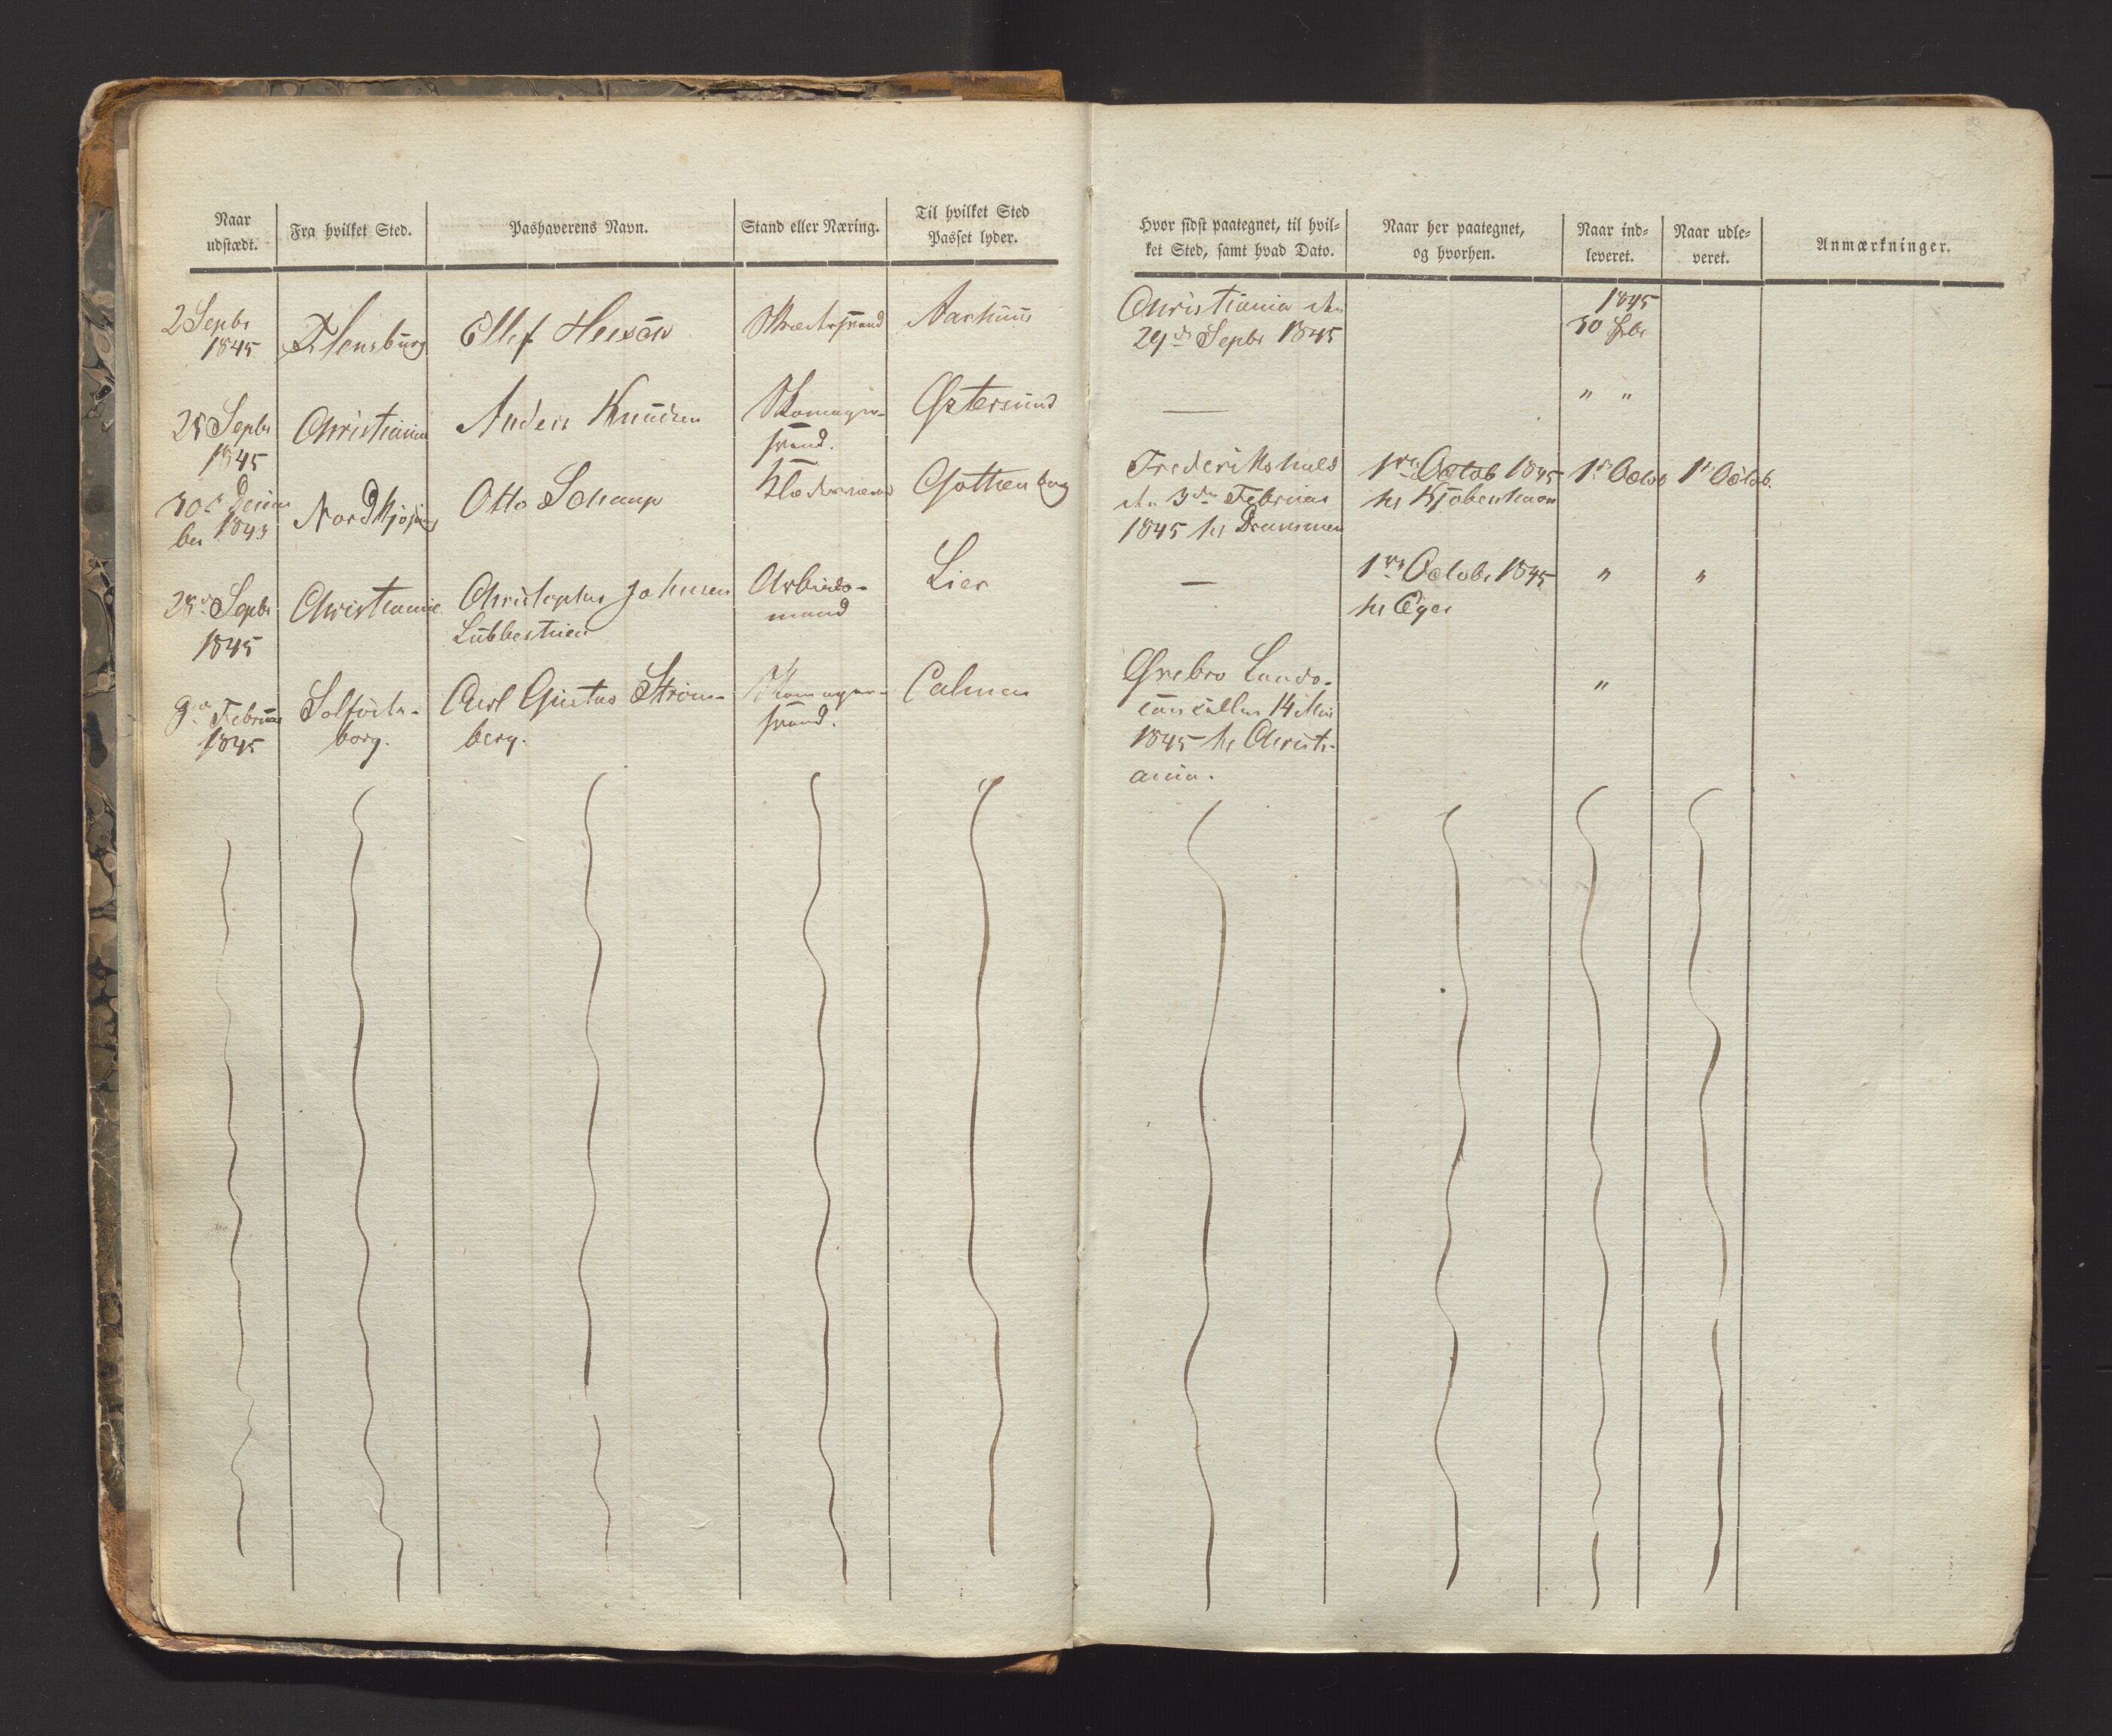 Naar
udstædt.
Fra hvilket Sted.
Pashaverens Navn.
Stand eller Næring.
Til hvilket Sted
Passet lyder.
Hvor sidst paategnet, til hvil-
ket Sted, samt hvad Dato.
Naar her paategnet,
og hvorhen.
Naar ind-
leveret.
Naar udle-
veret.
Anmærkninger.
2 Sepbr
1845
Flensburg
Ellef
Aarhuus
Christiania den
29de Sepbr 1845
1845
30 Spbr
28 Sepbr
1845
Christiania
Anders Knudsen
Skomager-
svend.
Østersund
—
" "
30te Decem
ber 1843
Nordkjøping
Otto Schaup
Gothenborg
Frederikshald
den 3die Februar
1845 til Drammen
1ste Octob 1845
til Kjøbenhavn
1ste Octob
1ste Octob.
28de Sepbr
1845
Christiania
Christopher Johnsen
Lübbestuen
Arbeids-
mand
Lier
—
1ste Octobr 1845
til Eger
"
"
9de Februar
1845
borg.
Carl Gustav Strøm-
berg.
Skomager-
svend.
Calmar
Ørebro Lands-
14 Mai
1845 til Christi-
ania.
"